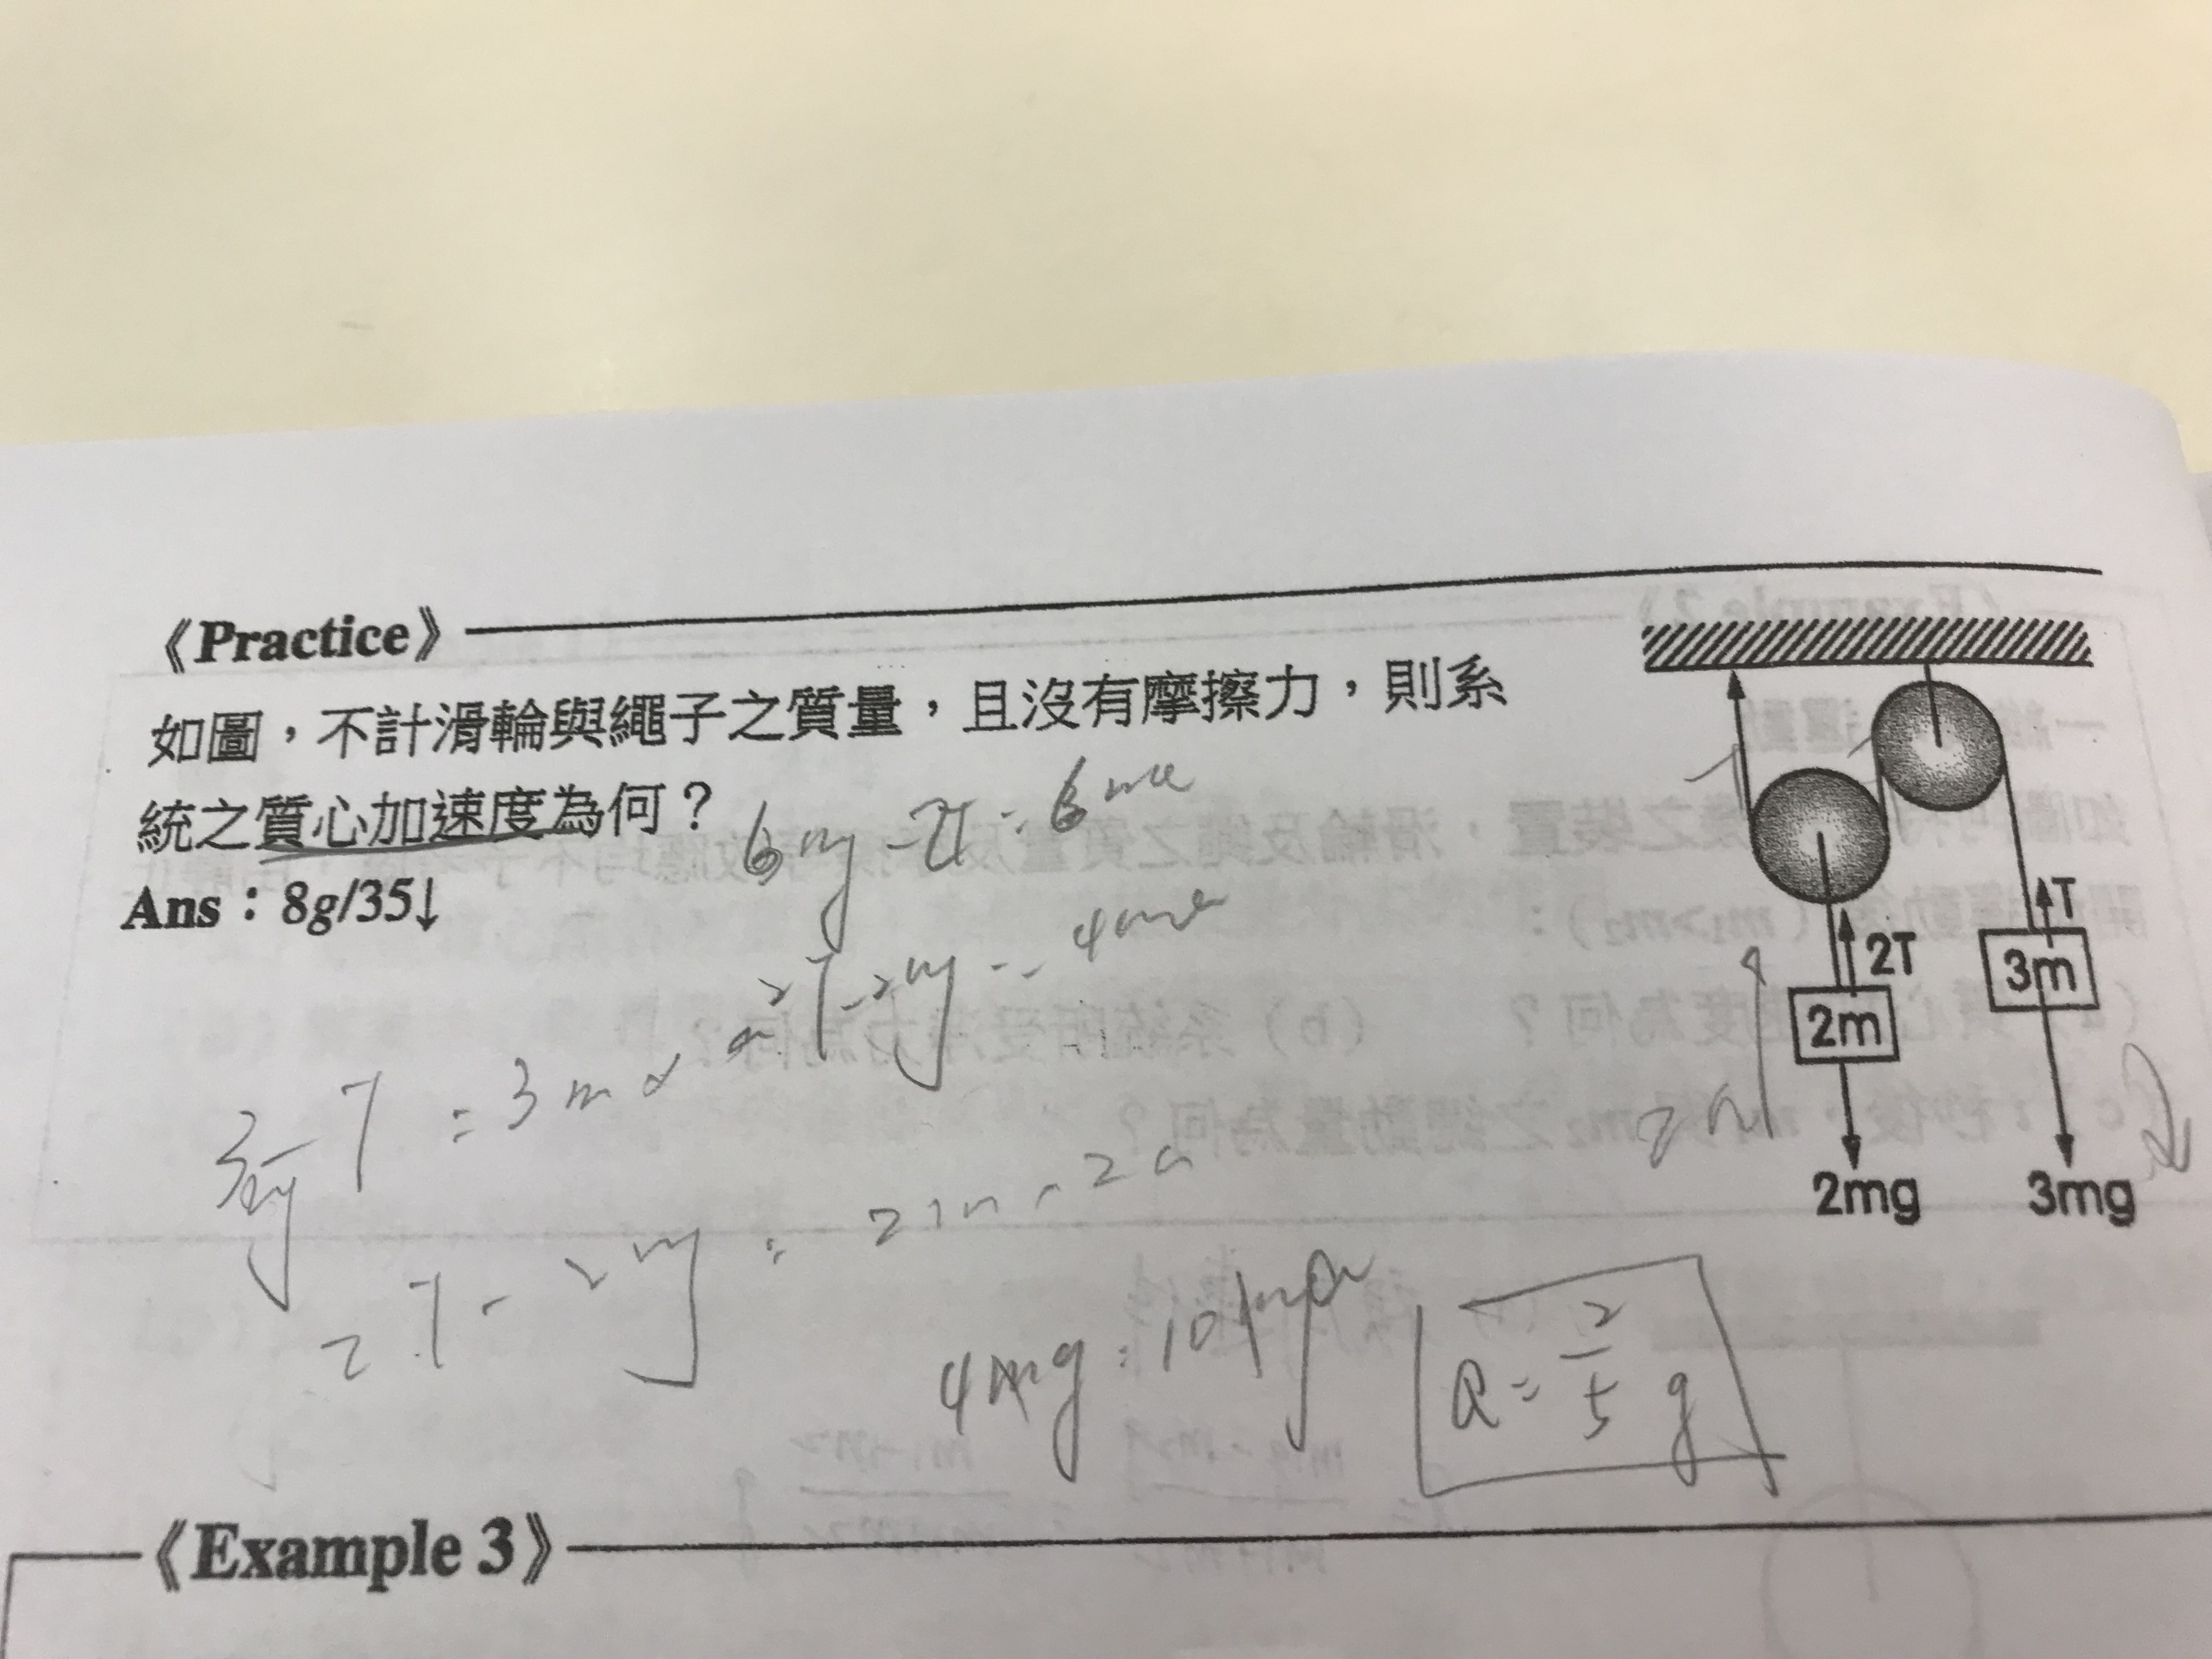 《Practice》
如圖，不計滑輪與繩子之質量，且沒有摩擦力，則系
統之質心加速度為何？
Ans：8g/35↓
6mg - 2T = 6ma
2T - 2mg = 4ma
3mg T = 3ma
2T - 2mg = 2m · 2a
4mg = 10ma
a = 2/5 g
T
2T
3m
2m
2a
2mg
3mg
《Example 3》